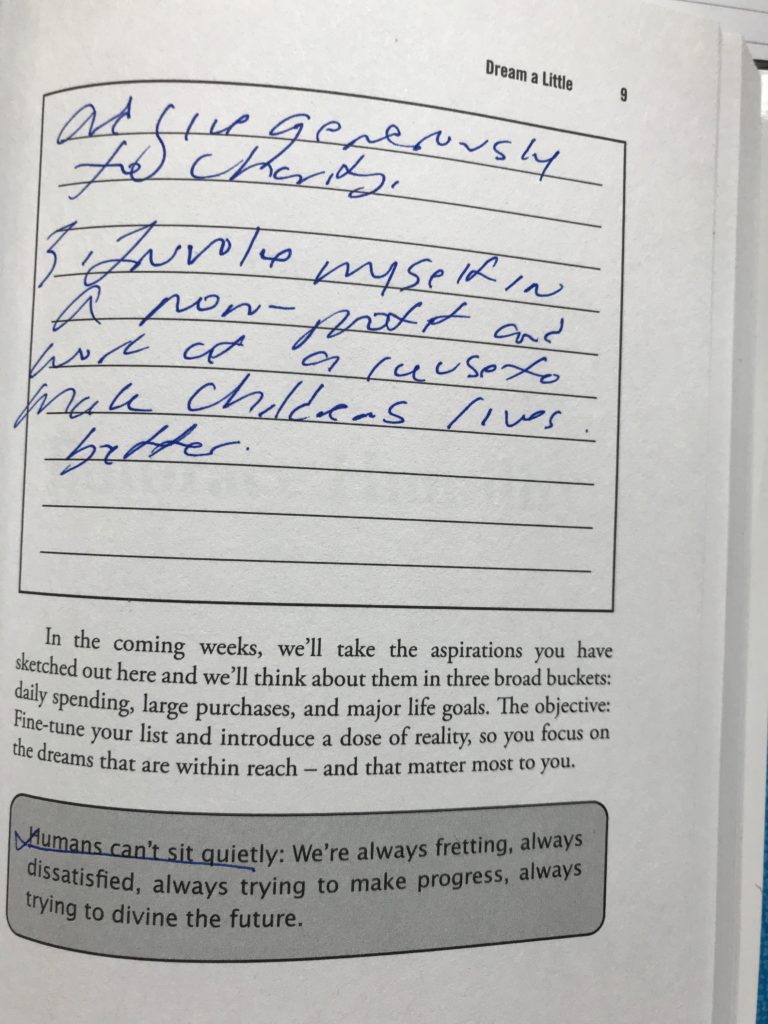 Dream a Little 9
and give generously
to charity.
3. Involve myself in
a non-profit and
work at a cause to
make childrens lives.
better.
In the coming weeks, we'll take the aspirations you have
sketched out here and we'll think about them in three broad buckets:
daily spending, large purchases, and major life goals. The objective:
Fine-tune your list and introduce a dose of reality, so you focus on
the dreams that are within reach – and that matter most to you.
Humans can't sit quietly: We're always fretting, always
dissatisfied, always trying to make progress, always
trying to divine the future.